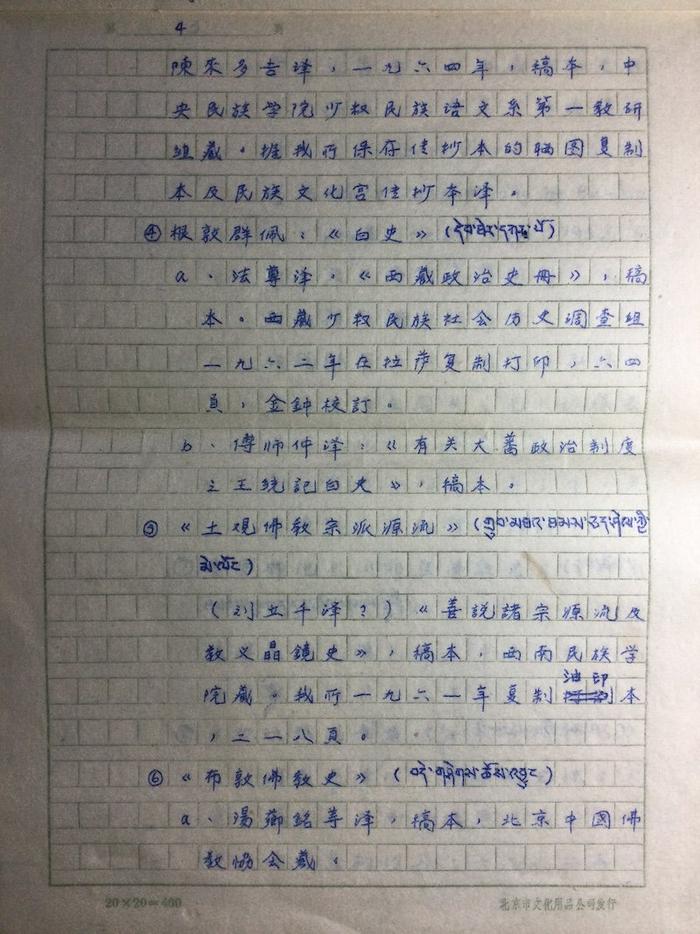 第 4 页
陳來多吉泽，一九六四年，稿本，中
央民族学院少数民族语文系第一教研
组藏。据我所保存佳抄本的晒图复制
本及民族文化宫佳抄本泽。
④根敦群佩：《白史》(དེབ་ཐེར་དཀར་པོ)
a、法尊泽：《西藏政治史册》，稿
本。西藏少数民族社会历史调查组
一九六二年在拉萨复制打印，六四
頁，金鈡校訂。
b、傅师仲泽：《有关大蕃政治制度
之王统記白史》，稿本。
⑤《土观佛教宗派源流》(གྲུབ་མཐའ་ཐམས་ཅད་ཤེལ་གྱི་
མེ་ལོང)
(刘立千泽?)《善説諸宗源流及
教义晶鏡史》，稿本，西南民族学
院藏。我所一九六一年复制油印本
，二一八頁。
⑥《布敦佛教史》(བདེ་གཤེགས་ཆོས་འབྱུང)
a、湯薌銘等泽，稿本，北京中國佛
教协会藏。
20×20=400
北京市文化用品公司发行